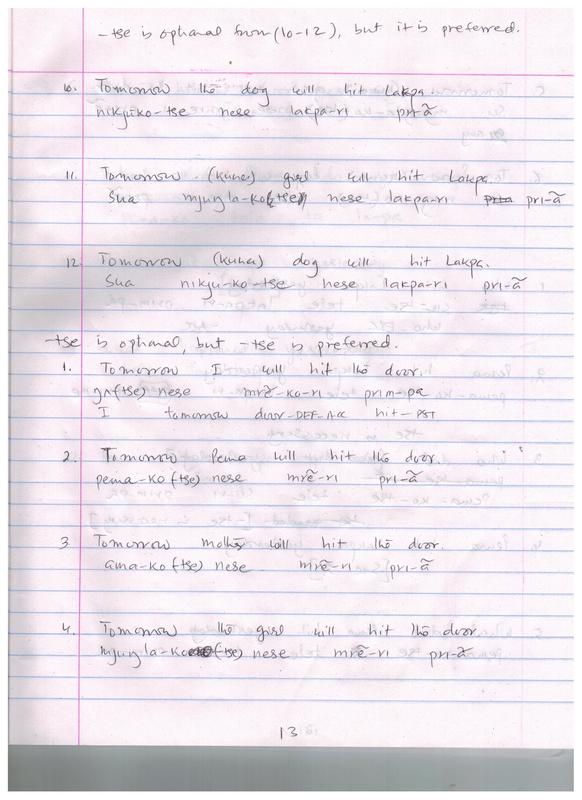 -tse is optional from (10-12), but it is preferred.
10. Tomorrow the dog will hit Lakpa
nikjuko-tse nese lakpa-ri pri-ã
11. Tomorrow (kuna) girl will hit Lakpa.
Sua mjuŋla-ko(tse) nese lakpa-ri pri-ã
12. Tomorrow (kuna) dog will hit Lakpa.
Sua nikju-ko-tse nese lakpa-ri pri-ã
-tse is optional, but -tse is preferred.
1. Tomorrow I will hit the door.
(tse) nese mrẽ-ko-ri prim-pa
I tomorrow door-DEF-ACC hit-PST
2. Tomorrow Pema will hit the door.
pema-ko (tse) nese mrẽ-ri pri-ã
3. Tomorrow mother will hit the door.
ama-ko (tse) nese mrẽ-ri pri-ã
4. Tomorrow the girl will hit the door.
mjuŋla-ko (tse) nese mrẽ-ri pri-ã
13